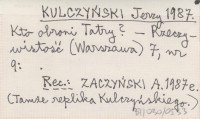 KULCZYŃSKI Jerzy 1987.
Kto obroni Tatry? – Rzeczy-
wistość (Warszawa) 7, nr
9: .
Rec.: ZACZYŃSKI A. 1987 r.
(Tamże replika Kulczyńskiego.)